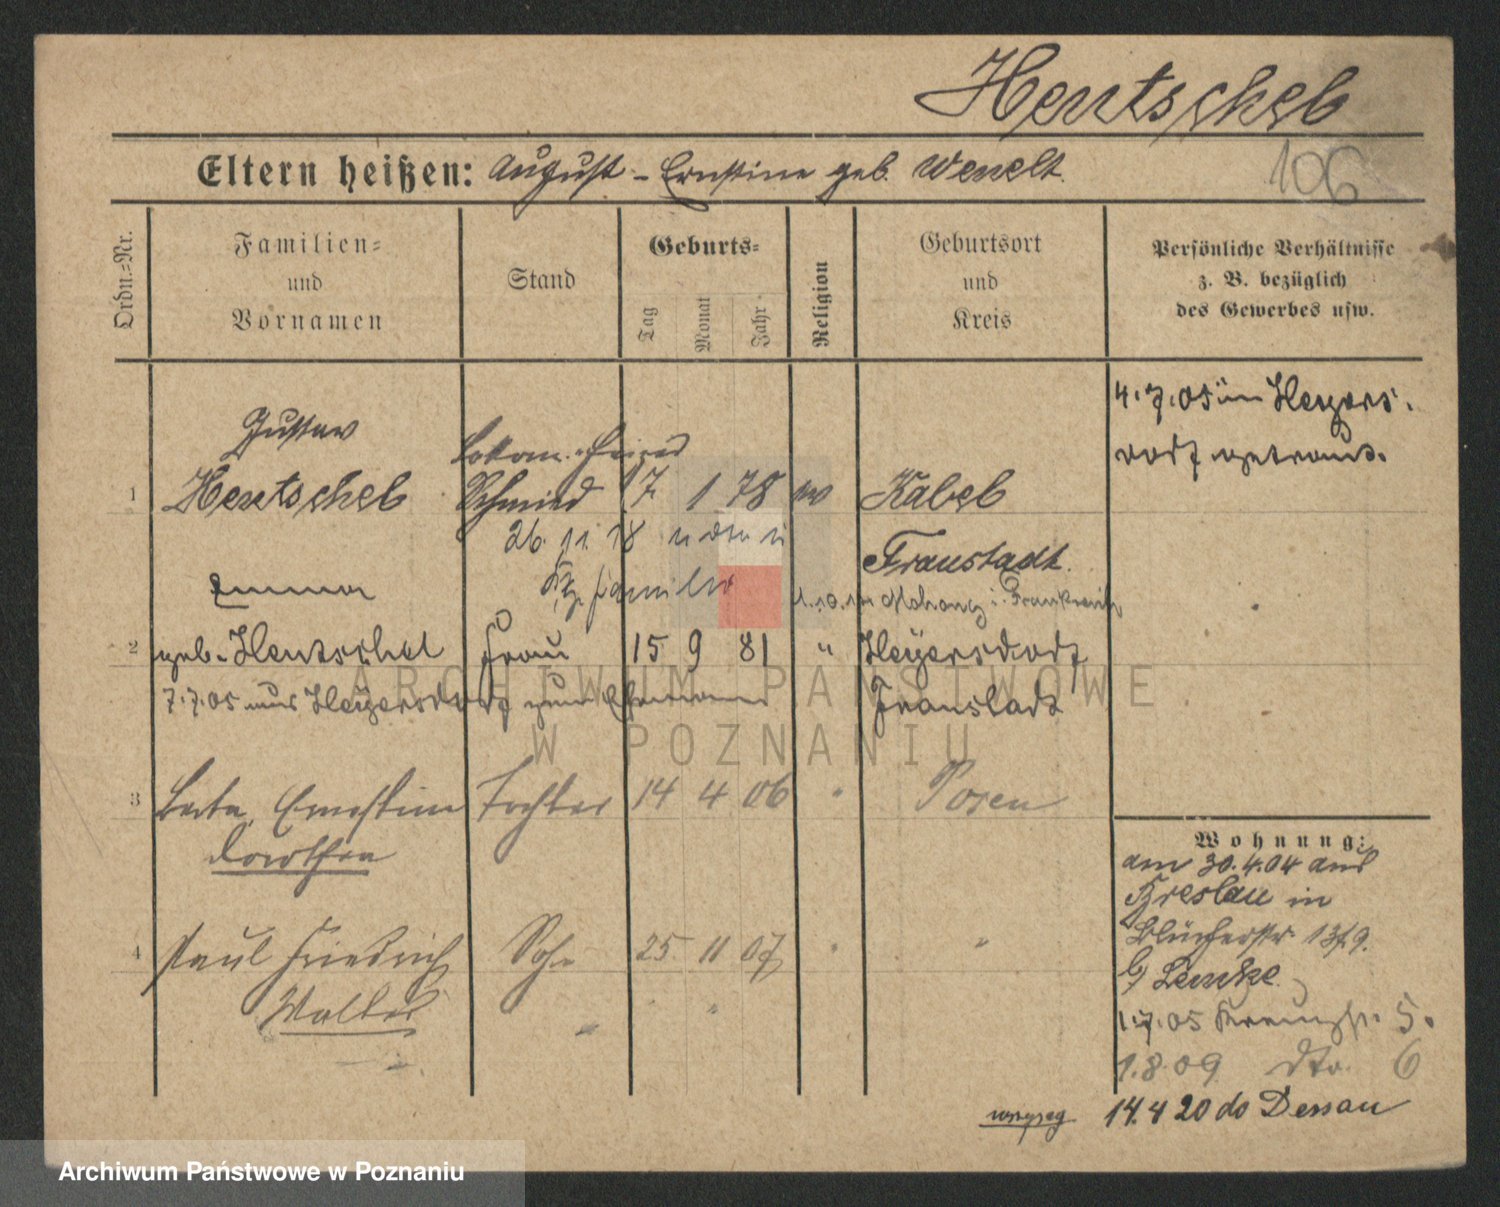 Hentschel
106
Eltern heißen: August - Ernstine geb. Wenelt.
Ordn.=Nr.
Familien=
und
Vornamen
Stand
Geburts=
Tag
Monat
Jahr
Religion
Geburtsort
und
Kreis
Persönliche Verhältnisse
z. B. bezüglich
des Gewerbes usw.
4.7.05 in Heyers-
dorf getraut.
Gustav
1 Hentschel
Schmied 17 1 78 Kabel
26. 11. 18
Fraustadt.
Familie
1.10. Frankreich
Emma
2 geb. Hentschel Frau 15 9 81 " Heyersdorf
7.7.05 aus Heyersdorf zum Ehemann
Fraustadt
3 Berta, Ernestine Tochter 14 4 06 " Posen
Dorothea
4 Paul Friedrich Sohn 25 11 07 " "
Walter
Wohnung:
am 30.4.04 aus
Breslau in
Blücherstr. 13
b/ Lemke
1.7.05 5.
1.8.09 dto. 6
14.4 20 do Dessau
ARCHIWUM PAŃSTWOWE
W POZNANIU
Archiwum Państwowe w Poznaniu